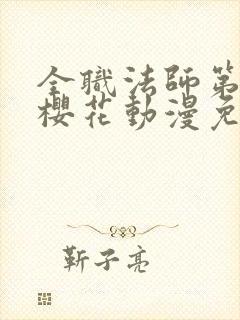 全職法師第
櫻花動漫免
靳子亮